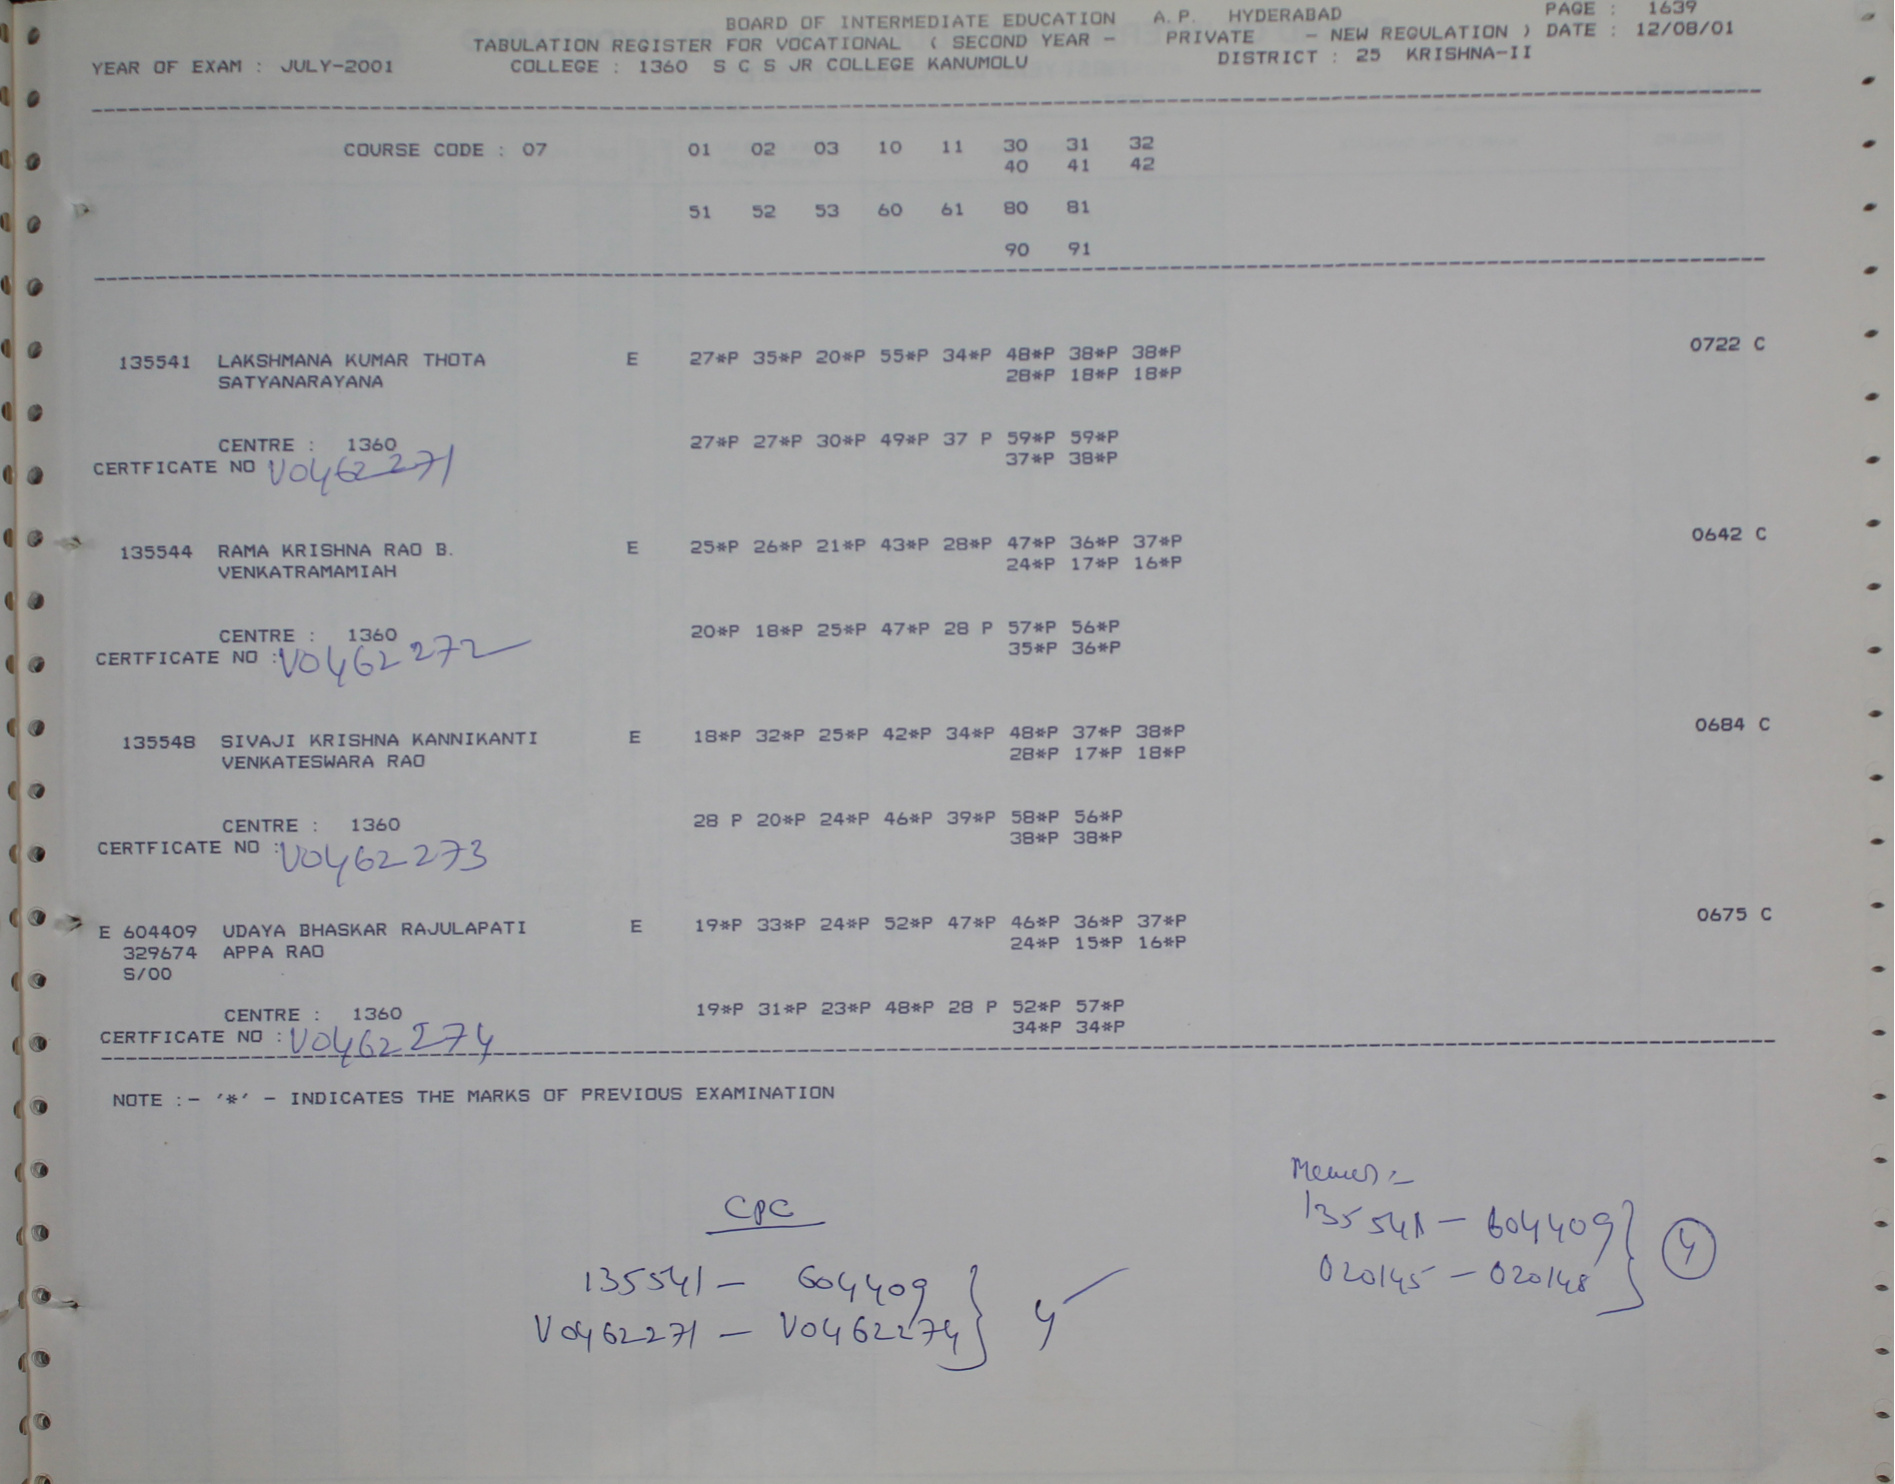 BOARD OF INTERMEDIATE EDUCATION A.P. HYDERABAD PAGE : 1639
TABULATION REGISTER FOR VOCATIONAL ( SECOND YEAR - PRIVATE - NEW REGULATION ) DATE : 12/08/01
YEAR OF EXAM : JULY-2001 COLLEGE : 1360 S C S JR COLLEGE KANUMOLU DISTRICT : 25 KRISHNA-II
COURSE CODE : 07 01 02 03 10 11 30 31 32
40 41 42
51 52 53 60 61 80 81
90 91
135541 LAKSHMANA KUMAR THOTA E 27*P 35*P 20*P 55*P 34*P 48*P 38*P 38*P 0722 C
SATYANARAYANA 28*P 18*P 18*P
CENTRE : 1360 27*P 27*P 30*P 49*P 37 P 59*P 59*P
CERTFICATE NO V0462271 37*P 38*P
135544 RAMA KRISHNA RAO B. E 25*P 26*P 21*P 43*P 28*P 47*P 36*P 37*P 0642 C
VENKATRAMAMIAH 24*P 17*P 16*P
CENTRE : 1360 20*P 18*P 25*P 47*P 28 P 57*P 56*P
CERTFICATE NO : V0462272 35*P 36*P
135548 SIVAJI KRISHNA KANNIKANTI E 18*P 32*P 25*P 42*P 34*P 48*P 37*P 38*P 0684 C
VENKATESWARA RAO 28*P 17*P 18*P
CENTRE : 1360 28 P 20*P 24*P 46*P 39*P 58*P 56*P
CERTFICATE NO : V0462273 38*P 38*P
E 604409 UDAYA BHASKAR RAJULAPATI E 19*P 33*P 24*P 52*P 47*P 46*P 36*P 37*P 0675 C
329674 APPA RAO 24*P 15*P 16*P
S/00
CENTRE : 1360 19*P 31*P 23*P 48*P 28 P 52*P 57*P
CERTFICATE NO : V0462274 34*P 34*P
NOTE :- '*' - INDICATES THE MARKS OF PREVIOUS EXAMINATION
CPC
135541 - 604409
V0462271 - V0462274 } 4
135541 - 604409
020145 - 020148 } 4